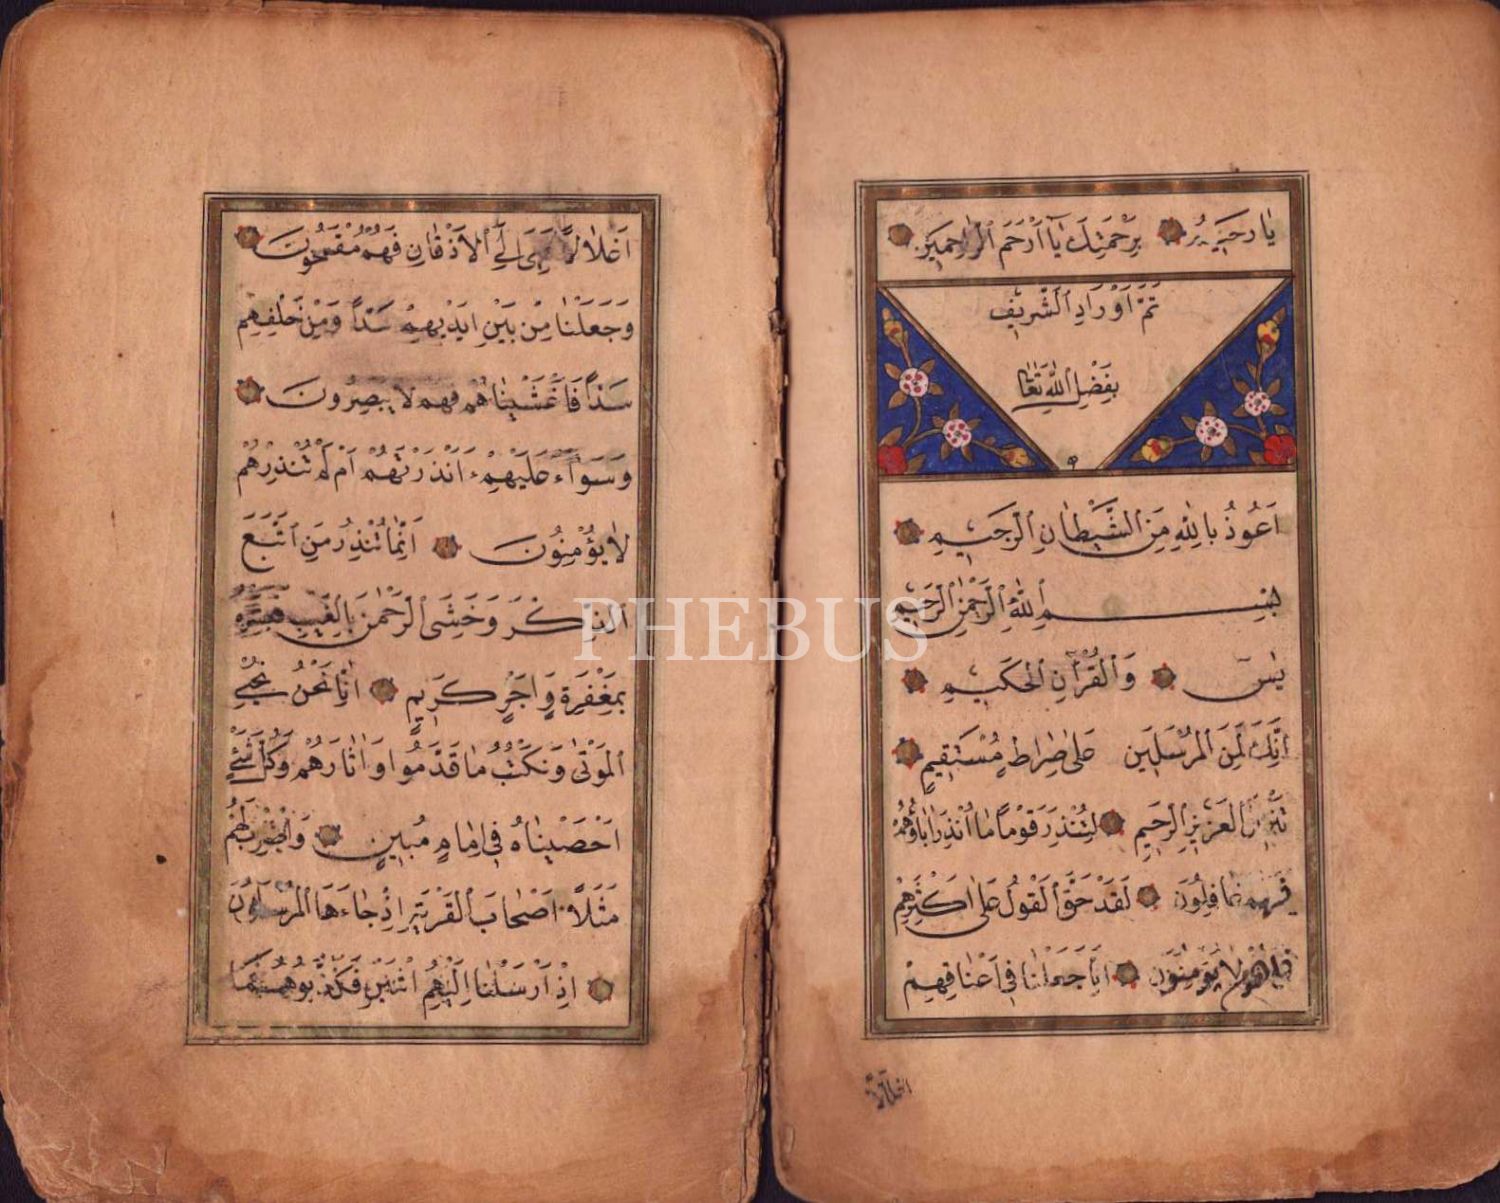 يَا رَحِيمُ بِرَحْمَتِكَ يَا أَرْحَمَ الرَّاحِمِينَ
تَمَّ أَوْرَادِ الشَّرِيفِ
بِفَضْلِ اللهِ تَعَالَى
اَعُوذُ بِاللهِ مِنَ الشَّيْطَانِ الرَّجِيمِ
بِسْمِ اللهِ الرَّحْمٰنِ الرَّحِيمِ
يٰسۤ وَالْقُرْآنِ الْحَكِيمِ
اِنَّكَ لَمِنَ الْمُرْسَلِينَ عَلٰى صِرَاطٍ مُسْتَقِيمٍ
تَنْزِيلَ الْعَزِيزِ الرَّحِيمِ لِتُنْذِرَ قَوْمًا مَا اُنْذِرَ اٰبَاؤُهُمْ
فَهُمْ غَافِلُونَ لَقَدْ حَقَّ الْقَوْلُ عَلٰى اَكْثَرِهِمْ
فَهُمْ لَا يُؤْمِنُونَ اِنَّا جَعَلْنَا فِى اَعْنَاقِهِمْ
اغلالا
اَغْلَالًا فَهِىَ اِلَى الْاَذْقَانِ فَهُمْ مُقْمَحُونَ
وَجَعَلْنَا مِنْ بَيْنِ اَيْدِيهِمْ سَدًّا وَمِنْ خَلْفِهِمْ
سَدًّا فَاَغْشَيْنَاهُمْ فَهُمْ لَا يُبْصِرُونَ
وَسَوَاءٌ عَلَيْهِمْ ءَاَنْذَرْتَهُمْ اَمْ لَمْ تُنْذِرْهُمْ
لَا يُؤْمِنُونَ اِنَّمَا تُنْذِرُ مَنِ اتَّبَعَ
الذِّكْرَ وَخَشِىَ الرَّحْمٰنَ بِالْغَيْبِ فَبَشِّرْهُ
بِمَغْفِرَةٍ وَاَجْرٍ كَرِيمٍ اِنَّا نَحْنُ نُحْيِى
الْمَوْتٰى وَنَكْتُبُ مَا قَدَّمُوا وَاٰثَارَهُمْ وَكُلَّ شَىْءٍ
اَحْصَيْنَاهُ فِى اِمَامٍ مُبِينٍ وَاضْرِبْ لَهُمْ
مَثَلًا اَصْحَابَ الْقَرْيَةِ اِذْ جَاءَهَا الْمُرْسَلُونَ
اِذْ اَرْسَلْنَا اِلَيْهِمُ اثْنَيْنِ فَكَذَّبُوهُمَا
PHEBUS